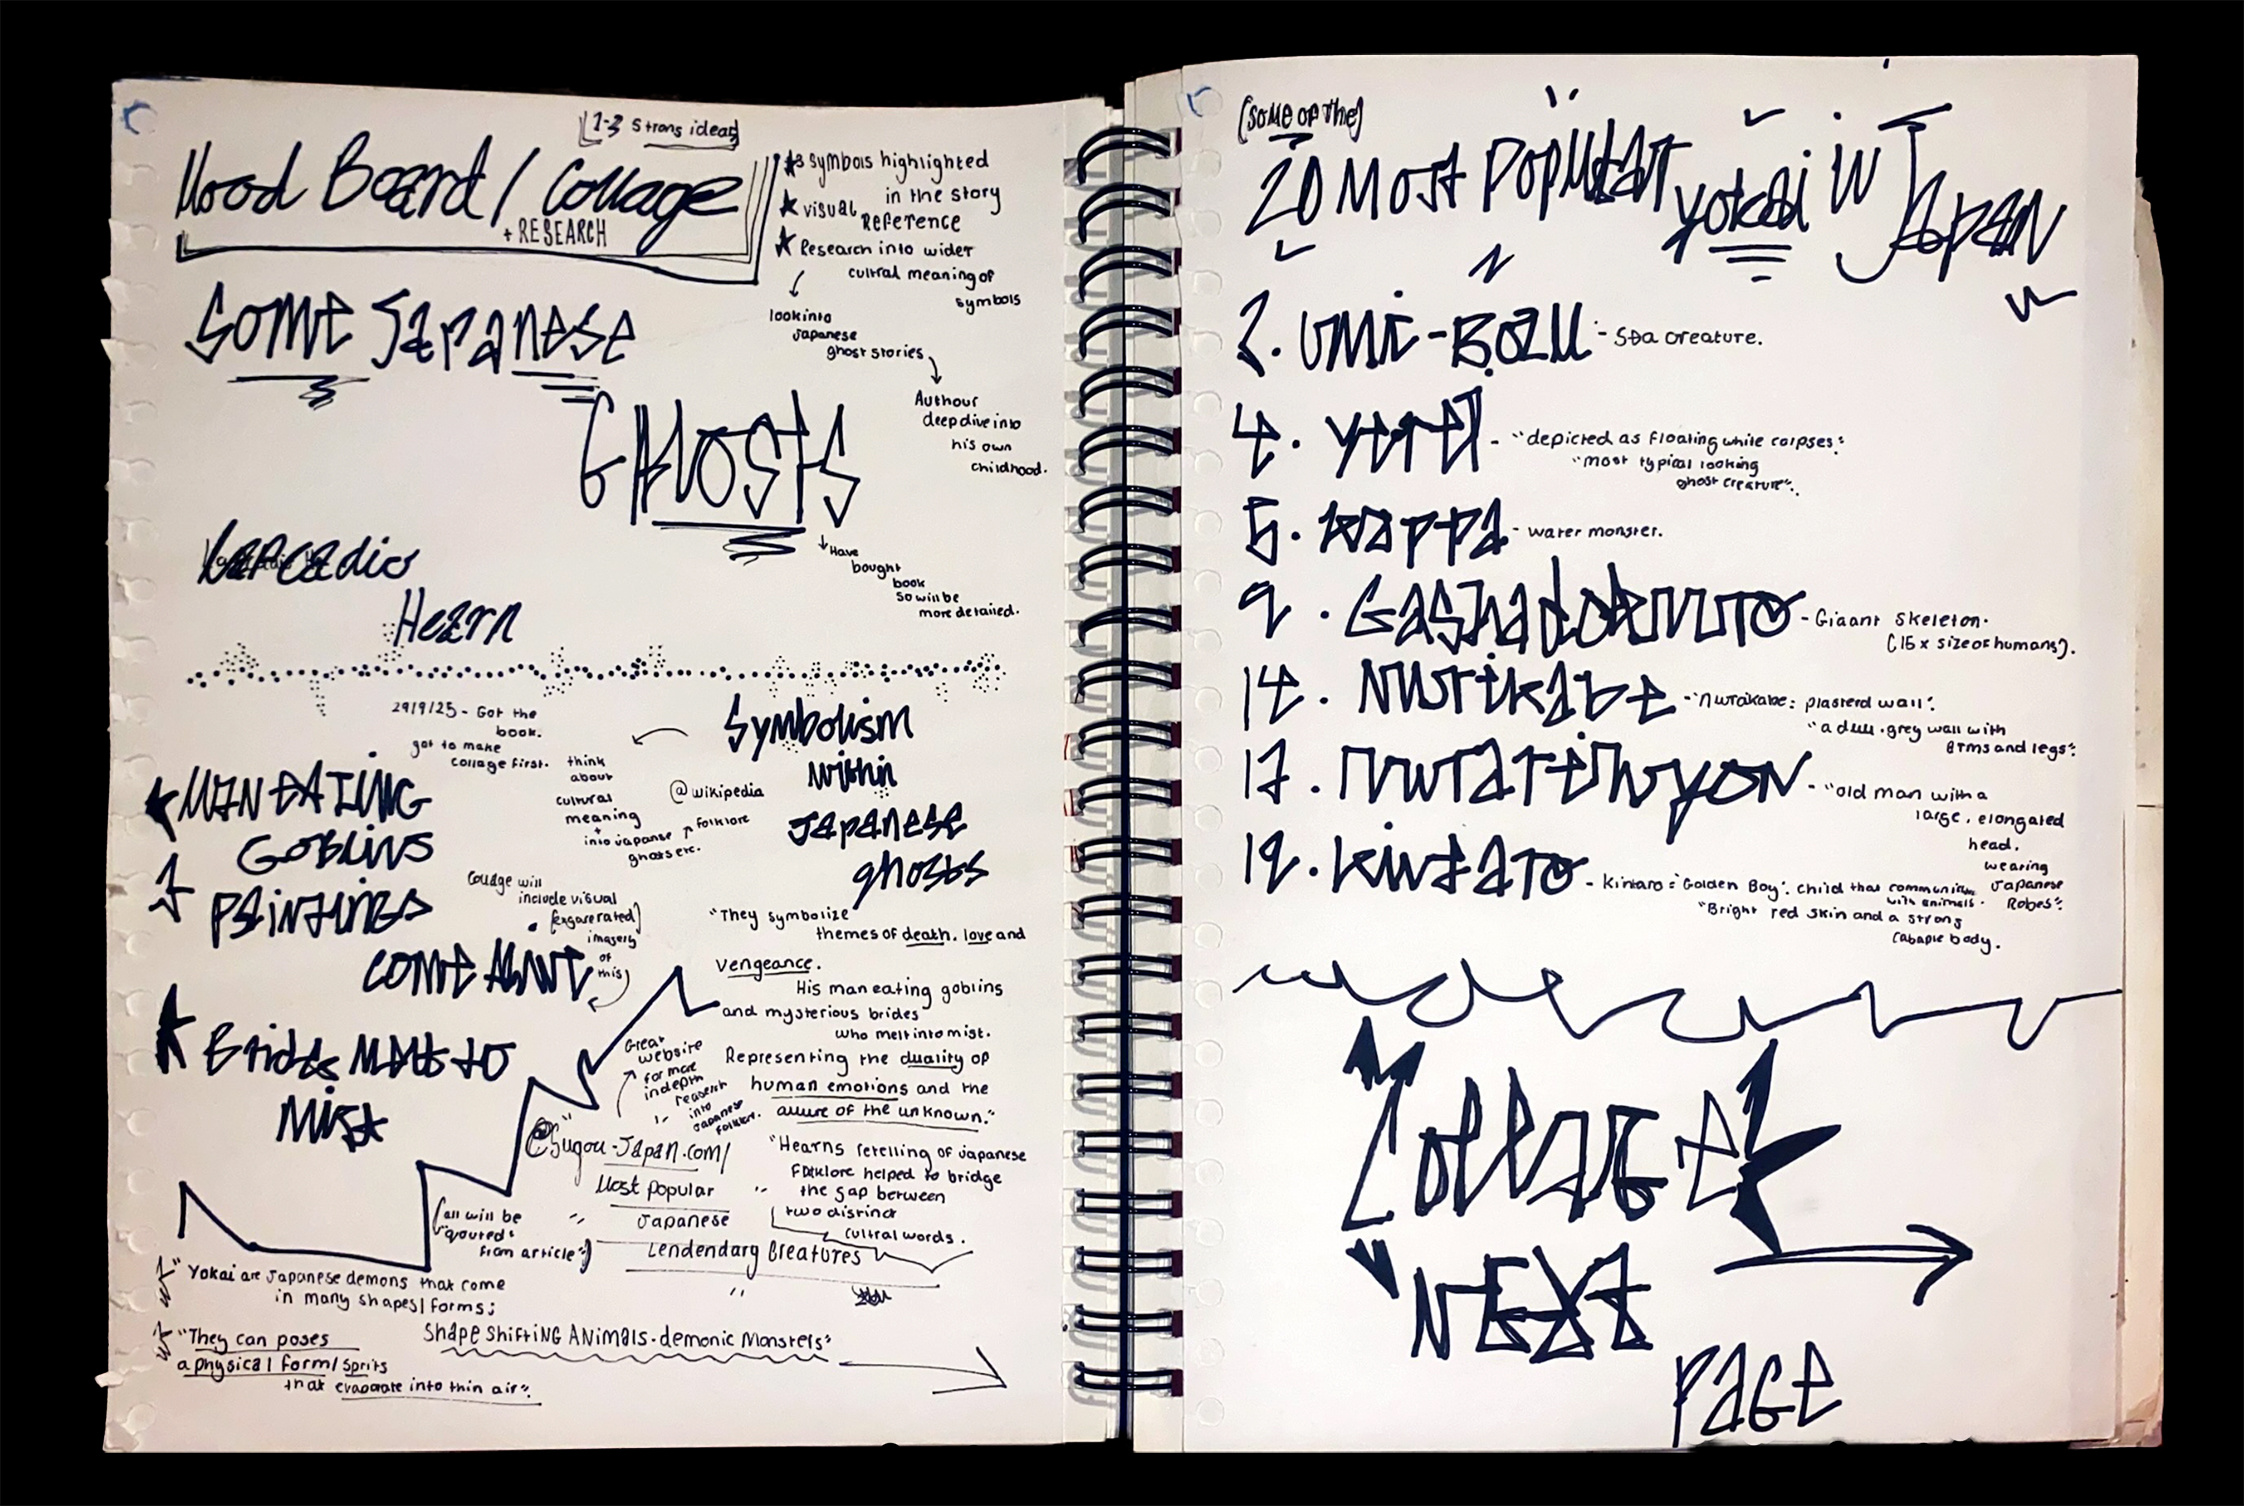 1-3 strong ideas
Mood Board / Collage
+ RESEARCH
3 symbols highlighted
in the story
visual
Reference
Research into wider
cultral meaning of
symbols
look into
Japanese
ghost stories
Authour
deep dive into
his own
childhood.
Some Japanese
GHOSTS
Have
bought
book
so will be
more detailed.
Larcadio
Hearn
29/9/25 - Got the
book.
got to make
collage first.
Symbolism
within
Japanese
ghosts
think
about
cultural
meaning
+
into Japanse
ghosts etc.
@wikipedia
folklore
MAN EATING
GOBLINS
PAINTINGS
COME ALIVE
Collage will
include visual
imagery
of
this)
Brides Melts to
Mist
"They symbolize
themes of death, love and
vengeance.
His man eating goblins
and mysterious brides
who melt into mist.
Representing the duality of
human emotions and the
allure of the unknown."
Great
website
for more
indepth
research
into
Japanese
folklore.
@Sugou-Japan.com/
Most popular
Japanese
Lendendary Creatures
"Hearns retelling of Japanese
Folklore helped to bridge
the gap between
two distinct
cultral words.
(all will be
"qouted"
from article")
"Yokai are Japanese demons that come
in many shapes/forms;
Shape Shifting Animals - demonic Monsters"
"They can poses
a physical form/ sprits
that evaporate into thin air".
(some of the)
20 Most popular yokai in Japan
2. Umi-Bozu - Sea creature.
4. Yurei - "depicted as floating white corpses".
"most typical looking
ghost creature".
5. Kappa - water monster.
9. Gashadokuro - Giaant Skeleton.
(15 x size of humans).
14. Nurikabe - "nurakabe: plasterd wall".
"a dull grey wall with
arms and legs".
17. Nurarihyon - "old man with a
large, elongated
head.
wearing
Japanese
Robes".
19. Kintaro - Kintaro = 'Golden Boy'. Child that
with animals.
"Bright red skin and a strong
Cabaple body.
Collage
NEXT
PAGE